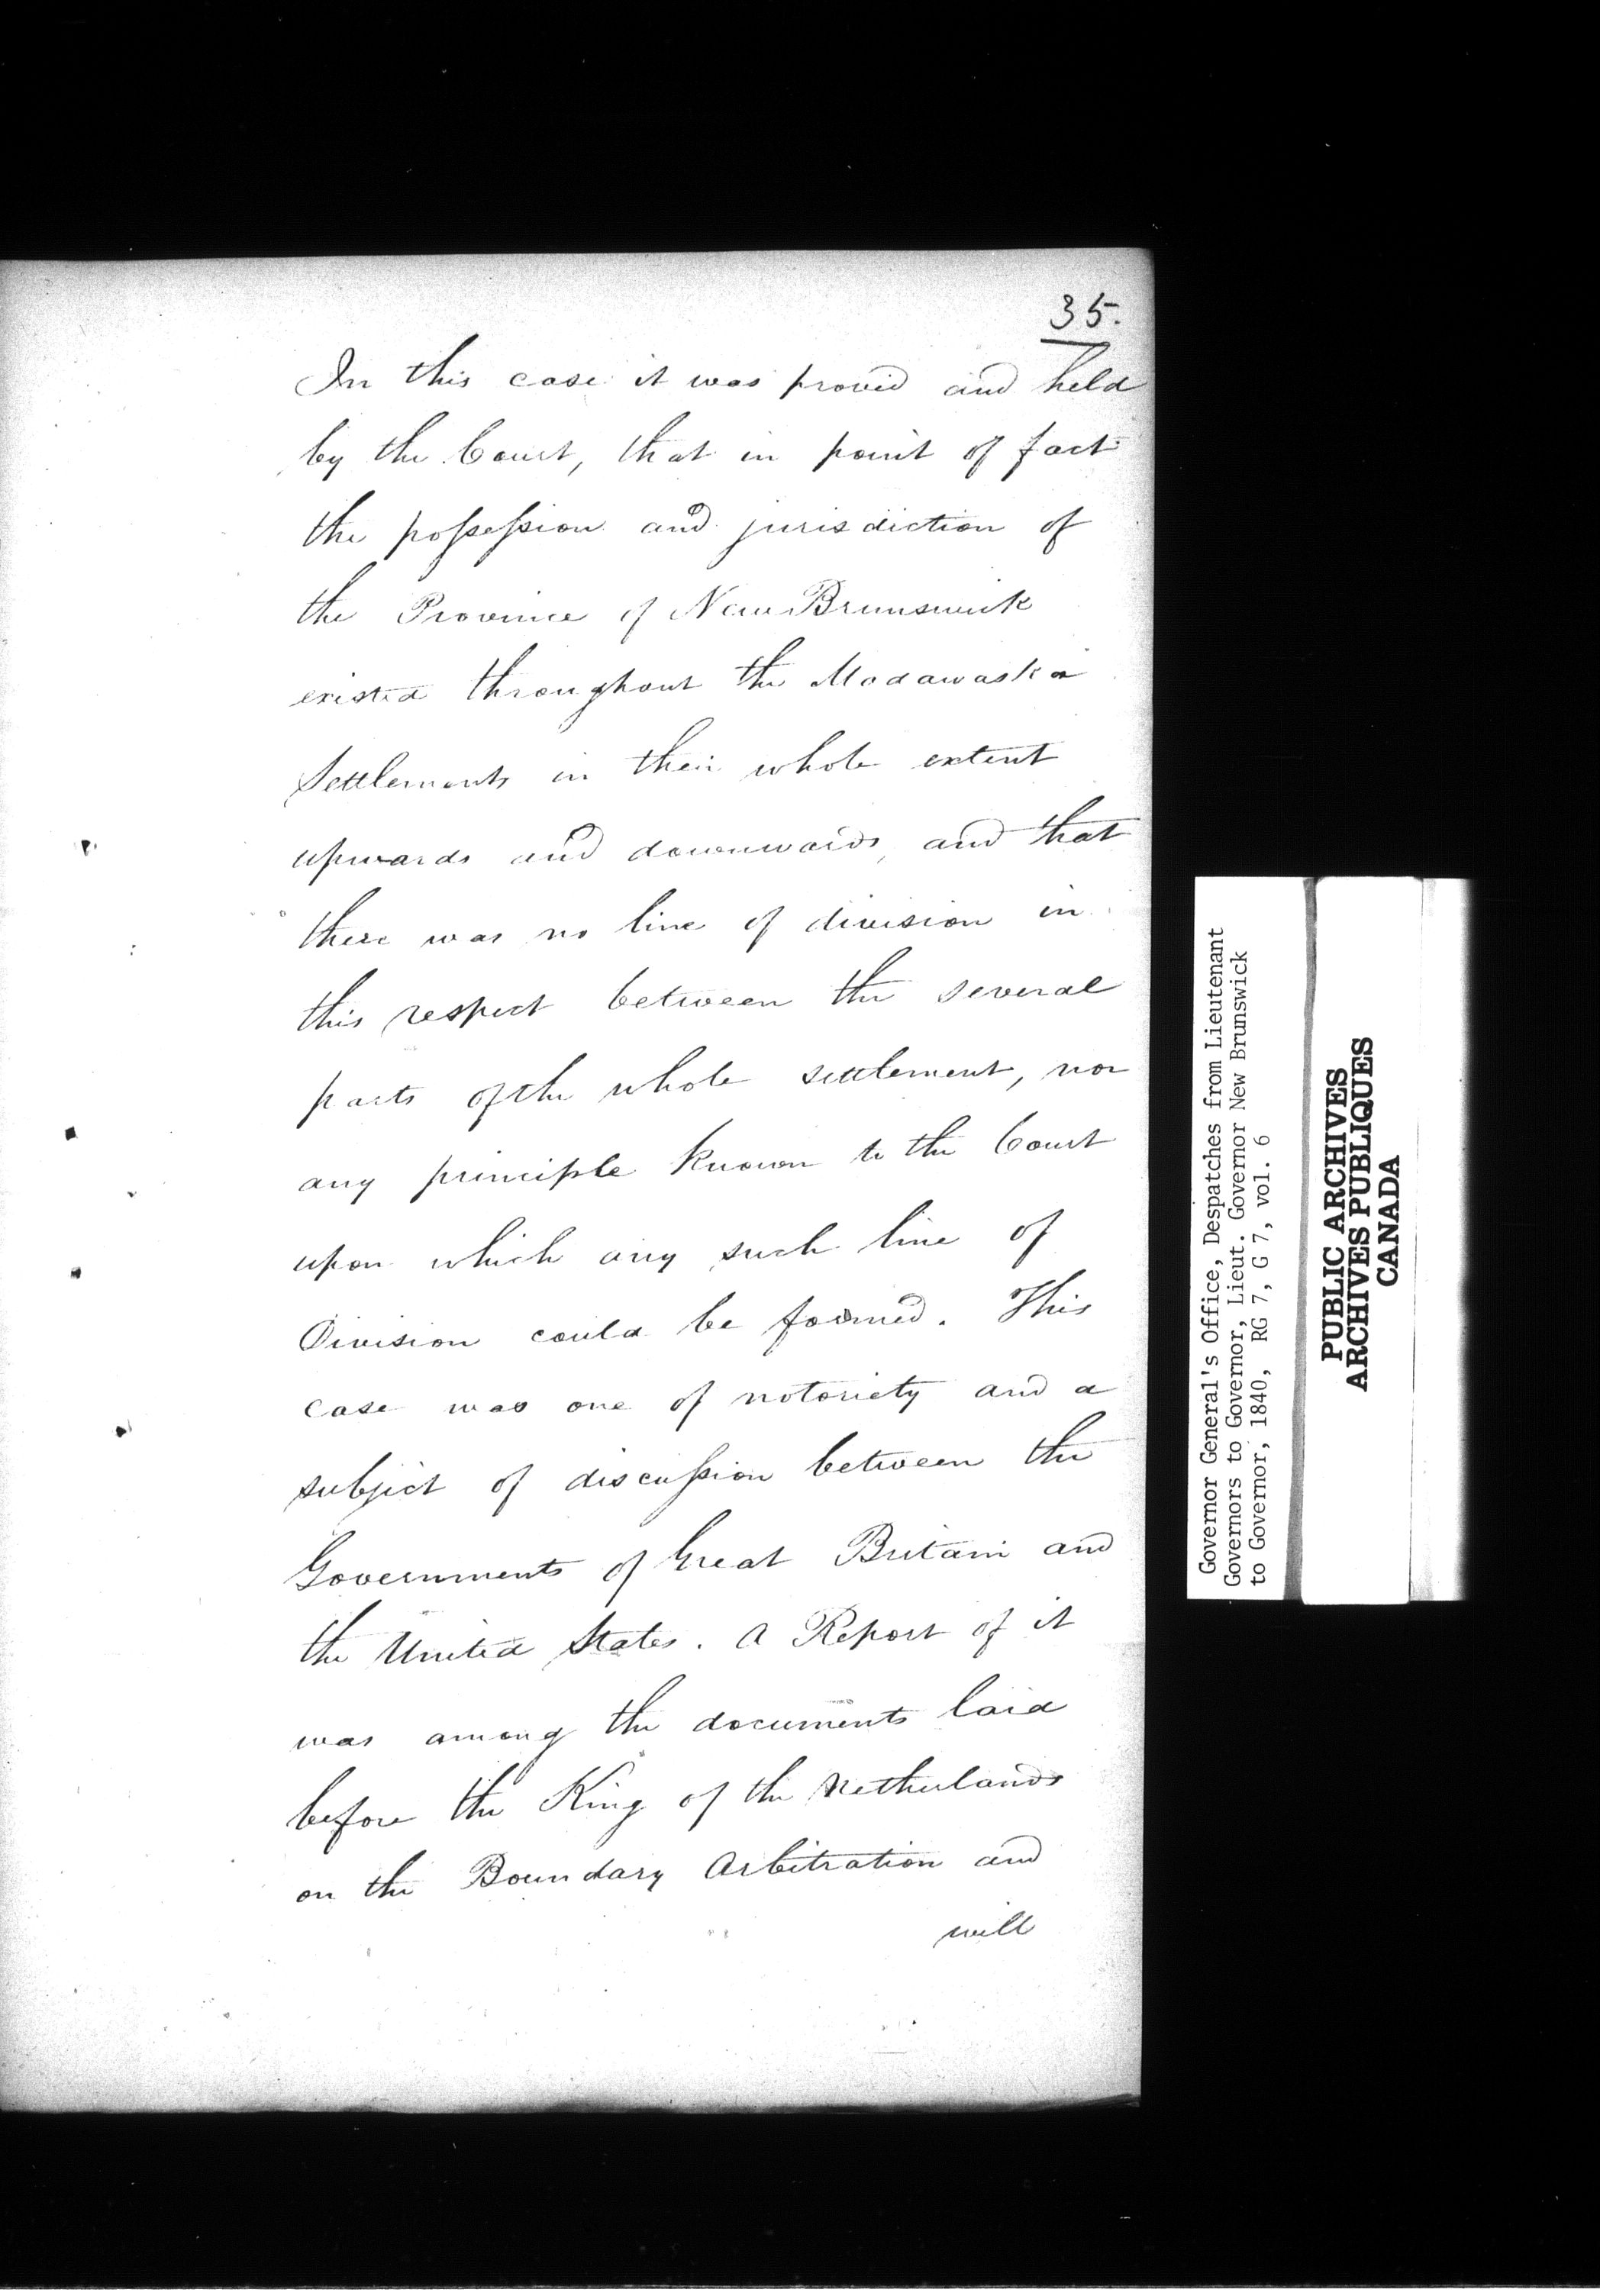 35.
In this case it was proved and held
by the Court, that in point of fact
the possession and jurisdiction of
the Province of New Brunswick
existed throughout the Madawaska
Settlements in their whole extent
upwards and downwards, and that
there was no line of division in
this respect between the several
parts of the whole settlement, nor
any principle known to the Court
upon which any such line of
Division could be formed. This
case was one of notoriety and a
subject of discussion between the
Governments of Great Britain and
the United States. A Report of it
was among the documents laid
before the King of the Netherlands
on the Boundary Arbitration and
will
Governor General's Office, Despatches from Lieutenant
Governors to Governor, Lieut. Governor New Brunswick
to Governor, 1840, RG 7, G 7, vol. 6
PUBLIC ARCHIVES
ARCHIVES PUBLIQUES
CANADA